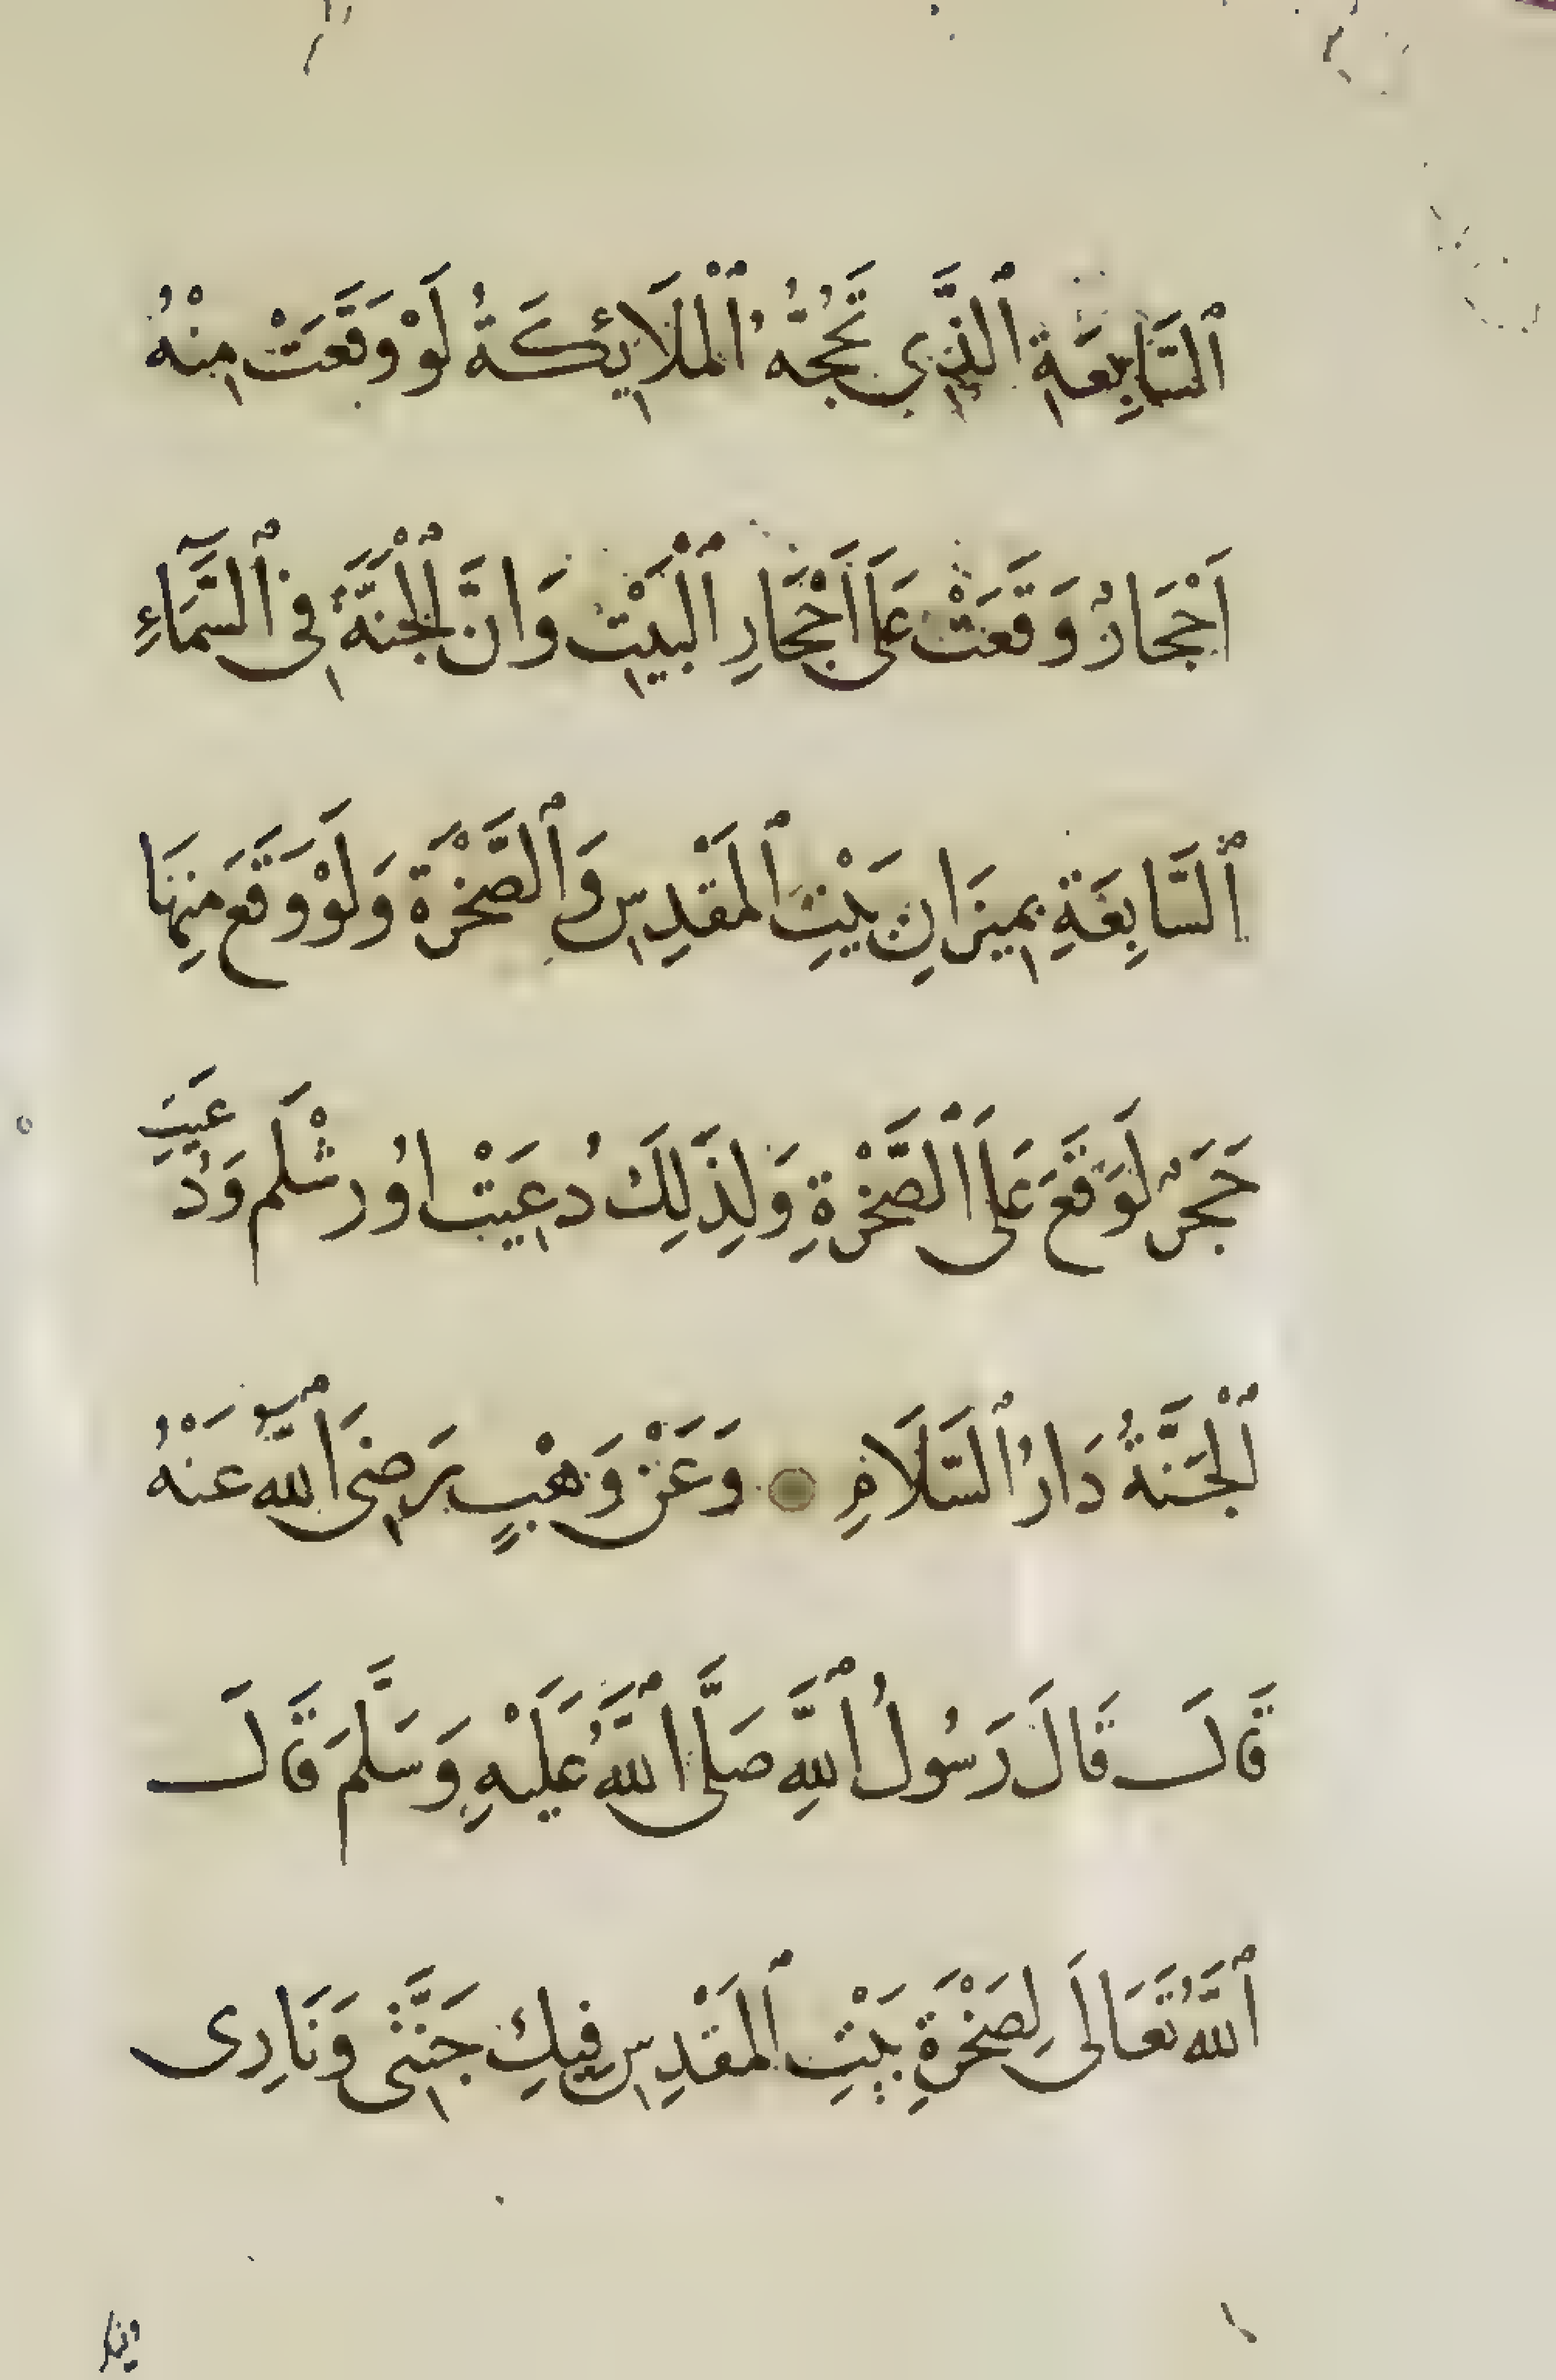 ٱلسَّابِعَةِ ٱلَّذِي تَحُجُّهُ ٱلْمَلَائِكَةُ لَوْ وَقَعَتْ مِنْهُ
اَحْجَارٌ وَقَعَتْ عَلَى اَحْجَارِ ٱلْبَيْتِ وَانَّ ٱلْجَنَّةَ فِى ٱلسَّمَآءِ
ٱلسَّابِعَةِ بِمِيزَانِ بَيْتِ ٱلمَقْدِسِ وَٱلصَّخْرَةِ وَلَوْ وَقَعَ مِنهَا
حَجَرٌ لَوَقَعَ عَلَى ٱلصَّخْرَةِ وَلِذَلِكَ دُعِيَتْ اُورشْلَم وَدُعِيَت
ٱلْجَنَّةُ دَارُ ٱلسَّلَامِ وَعَنْ وَهْبٍ رَضِىَ ٱللَّهُ عَنْهُ
قَالَ قَالَ رَسُولُ ٱللَّهِ صَلَّى ٱللَّهُ عَلَيْهِ وَسَلَّمَ قَالَ
ٱللَّهُ تَعَالَى لِصَخْرَةِ بَيْتِ ٱلمَقْدِسِ فِيكِ جَنَّتِى وَنَارِى